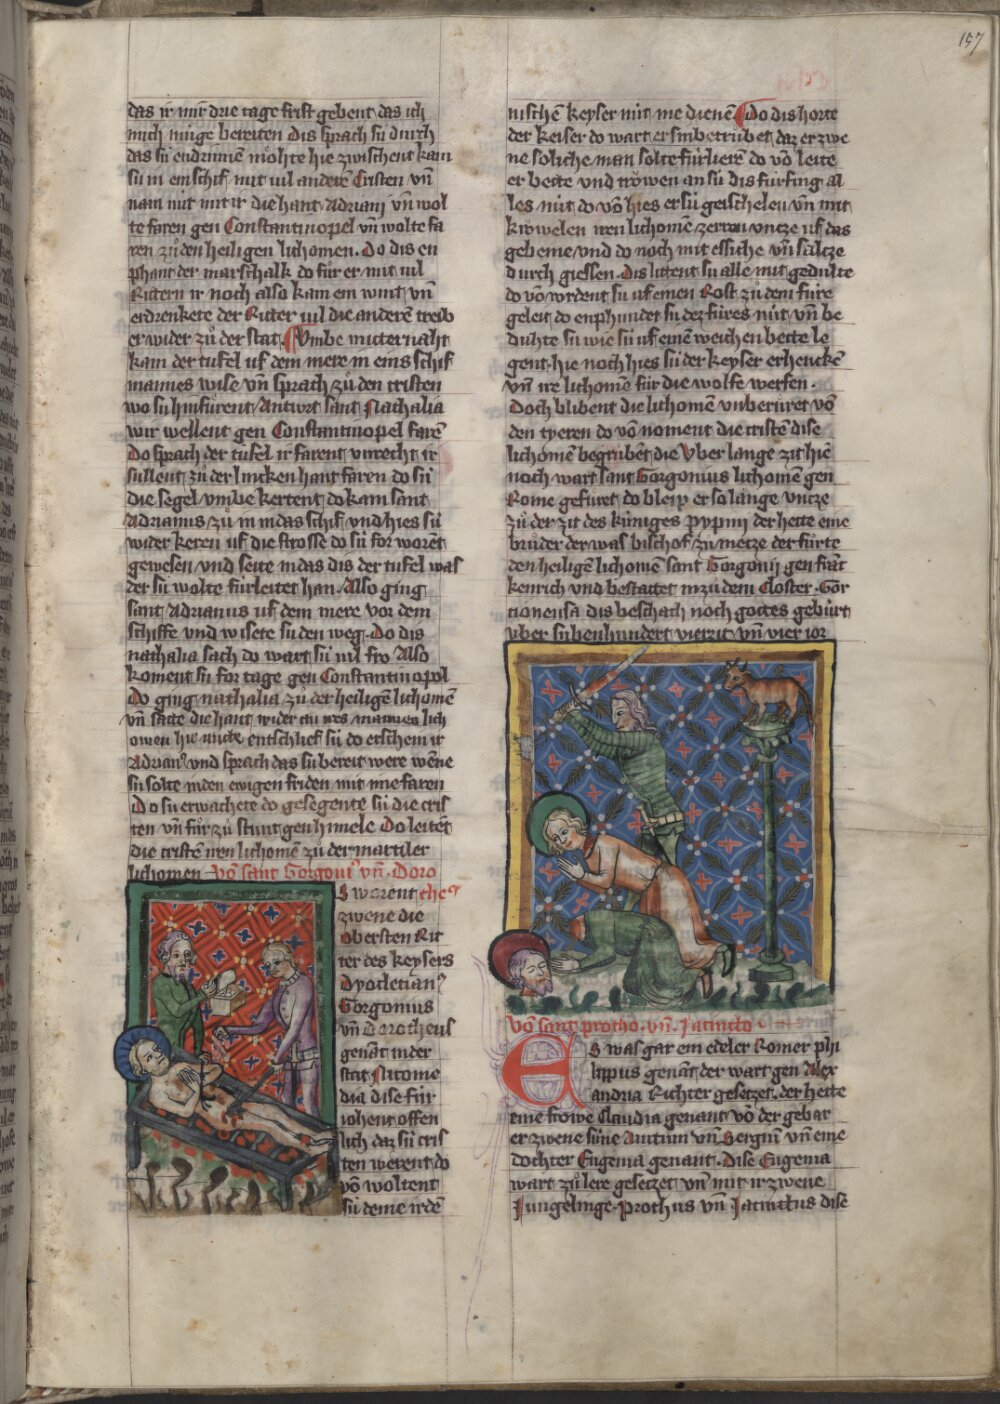 157
das ir mir drie tage frist gebent das ich
mich muge bereiten Dis sprach sú durch
das sú endrinnen möhte hie zwischent kam
sú in ein schif mit vil anderē Cristen vñ
nam mit mit ir die hant Adriani vñ wol
te faren gen Constantinopel vñ wolte fa
ren zů den heiligen lichomen. Do dis en
phant der marschalk do fůr er mit vil
Rittern ir noch also kam ein wint vñ
erdrenkete der Ritter vil die anderē treib
er wider zů der stat. Vmbe mitternaht
kam der tufel uf dem mere in eins schif
mannes wise vñ sprach zů den cristen
wo sú hin fůrent. Antwrt sant Nathalia
wir wellent gen Constantinopel farē
Do sprach der tufel ir farent vnrecht ir
sullent zů der lincken hant faren do sú
die segel vmbe kertent do kam sant
Adrianus zů in in das schif vnd hies sú
wider keren uf die strosse do sú for worēt
gewesen vnd seite in das dis der tufel was
der sú wolte fúrleitet han. Also ging
sant Adrianus uf dem mere vor dem
schiffe vnd wisete sú den weg. Do dis
nathalia sach do wart sú vil fro Also
koment sú for tage gen Constantinopol
Do ging nathalia zů der heiligē lichomē
vñ satte die hant wider zu ires mannes lich
omen hie mitte entschlief sú do erschein ir
Adrianꝰ vnd sprach das sú bereit were wēne
sú solte in den ewigen friden mit ime faren
Do sú erwachete do gesegente sú die cris
ten vñ fůr zů stunt gen himele Do leitēt
die cristē iren lichomē zů der martiler
lichomen. Vō sant Gorgoniꝰ vñ. Doro
theꝰ
S worent
zwene die
obersten Rit
ter des keysers
Dyocletianꝰ
Gorgonius
vñ Dorotheus
genāt in der
stat Nicome
dia dise fúr
iohent offen
lich daz sú cris
ten werent do
vō woltent
sú deme irdē
nischē keyser nit me dienē Do dis horte
der keiser do wart er sin betrúbet daz er zwe
ne soliche man solte fúrlierē do vō leite
er bette vnd tröwen an sú dis fúrfing al
les nút do vō hies er sú geischelen vñ mit
krowelen iren lichomē zerren vntze uf das
gebeine vnd do noch mit essiche vñ saltze
durch giessen. Dis littent sú alle mit gedulte
do vō wrdent sú uf einen Rost zů dem fúre
geleit do enphundēt sú dez fúres nút vñ be
duhte sú wie sú uf einē weichen bette le
gent. hie noch hies sú der keyser erhencken
vñ ire lichomē fúr die wolfe werfen.
Doch blibent die lichomē vnberúret vō
den tyeren do vō noment die cristē dise
lichomē begrubēt die Vber lange zit hie
noch wart sant Gorgonius lichomē gen
Rome gefúret do bleip er so lange vntze
zů der zit des kúniges pypini der hette eine
brůder der was bischof zu metze der fůrte
den heiligē lichomē sant Gorgonij gen frāt
kenrich vnd bestattet in zů dem Closter. Gor
tionensa dis beschach noch gottes gebúrt
vber súbenhundert viertzit vñ vier ior
Vō sant protho. vñ. Jatincto
ES was gar ein edeler Romer phi
lippus genāt der wart gen Alex
andria Richter gesetzet. der hette
eine frowe Claudia genant vō der gebar
er zwene súne Auitum vñ Sergiū vñ eine
dochter Eugenia genant. Dise Eugenia
wart zů lere gesetzet vñ mit ir zwene
Jungelinge. prothus vñ Jatinctus dise